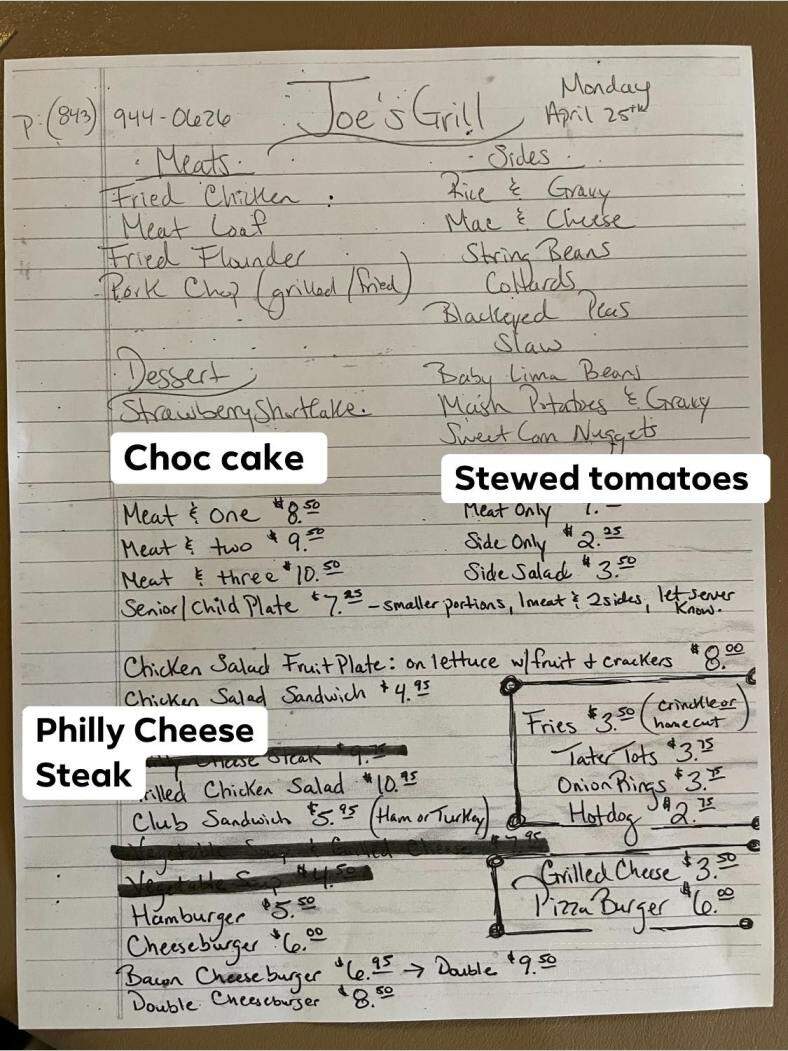 P: (843) 944-0626
Joe's Grill
Monday
April 25th
Meats
Fried Chicken
Meat Loaf
Fried Flounder
Pork Chop (grilled/fried)
Dessert
Strawberry Shortcake.
Choc cake
Sides
Rice & Gravy
Mac & Cheese
String Beans
Collards
Blackeyed Peas
Slaw
Baby Lima Beans
Mash Potatoes & Gravy
Sweet Corn Nuggets
Stewed tomatoes
Meat & one $8.50
Meat & two $9.50
Meat & three $10.50
Meat Only
Side Only $2.25
Side Salad $3.50
Senior/Child Plate $7.25 - smaller portions, 1 meat & 2 sides, let server know.
Chicken Salad Fruit Plate: on lettuce w/fruit & crackers $8.00
Chicken Salad Sandwich $4.95
Philly Cheese
Steak
Cheese Steak $9.75
Grilled Chicken Salad $10.95
Club Sandwich $5.95 (Ham or Turkey)
Vegetable Soup & Grilled Cheese $7.95
Vegetable Soup $4.50
Hamburger $5.50
Cheeseburger $6.00
Bacon Cheeseburger $6.95 → Double $9.50
Double Cheeseburger $8.50
Fries $3.50 (crinkle or homecut)
Tater Tots $3.75
Onion Rings $3.75
Hotdog $2.75
Grilled Cheese $3.50
Pizza Burger $6.00